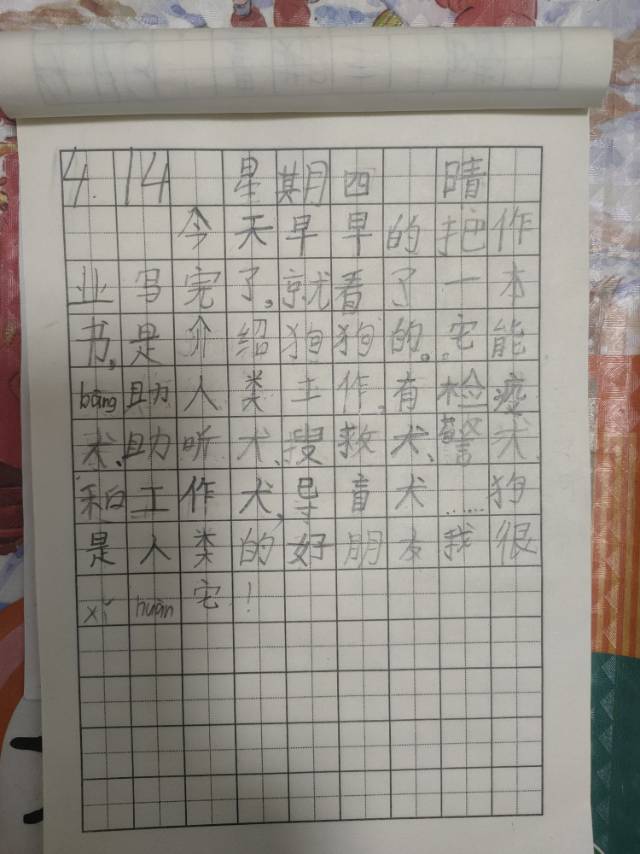 4.14 星期四 晴
今天早早的把作
业写完了,就看了一本
书,是介绍狗狗的。它能
bāng助人类工作,有检疫
犬、助听犬、搜救犬、警犬
和工作犬,导盲犬……狗
是人类的好朋友我很
xǐ huān 它!